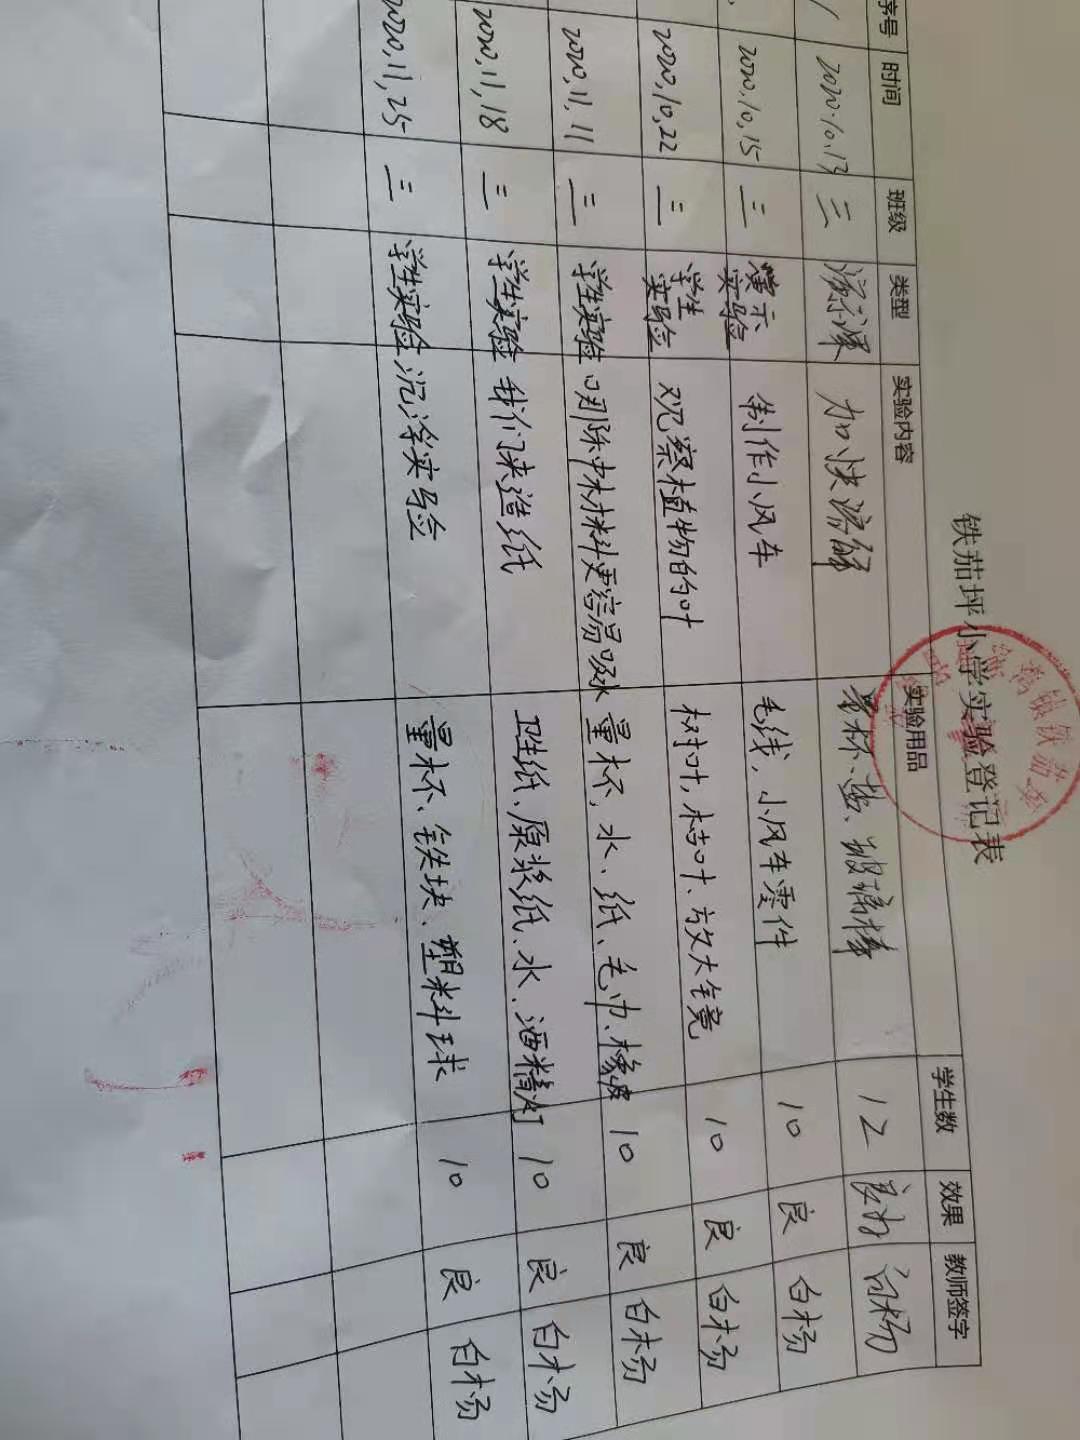 铁茄坪小学实验登记表
序号 时间 班级 类型 实验内容 实验用品 学生数 效果 教师签字
1 2020.10.13 三 演示课 加快溶解 量杯、盐、玻璃棒 12 良好 白杨
2020,10,15 三 演示实验 制作小风车 毛线,小风车零件 10 良 白杨
2020,10,22 三 学生实验 观察植物的叶 树叶,枯叶、放大镜 10 良 白杨
2020,11,11 三 学生实验 哪种材料更容易吸水 量杯,水、纸、毛巾、橡皮 10 良 白杨
2020,11,18 三 学生实验 我们来造纸 卫生纸、原浆纸、水、酒精灯 10 良 白杨
2020,11,25 三 学生实验 沉浮实验 量杯、铁块、塑料球 10 良 白杨